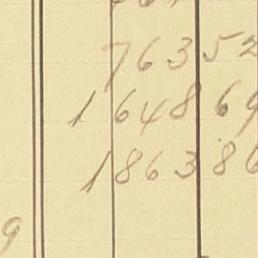 763 52
1648 69
1863 86
9